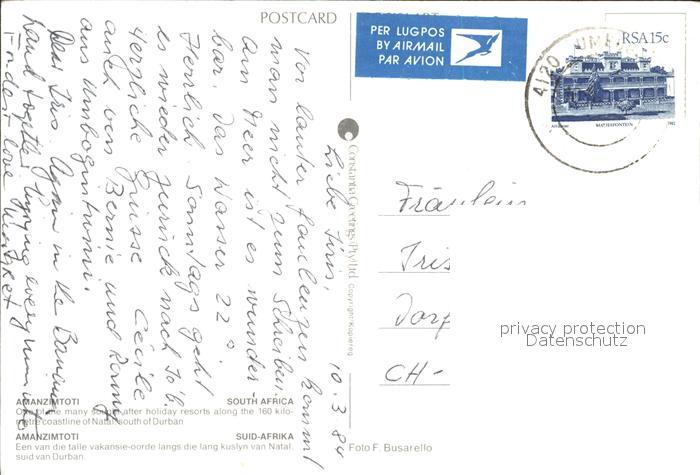 POSTCARD
PER LUGPOS
BY AIRMAIL
PAR AVION
RSA 15c
MATJIESFONTEIN
1982
4120 UM
Constantia Greetings (Pty) Ltd.
Copyright/Kopiereg
10.3.84
Liebe Iris,
Vor lauter faulenzen kommt
man nicht zum Schreiben.
Am Meer ist es wunder-
bar. Das Wasser 22°
Herrlich. Sonntags geht
es wieder zurück nach Jo'b.
Herzliche Grüsse Cécile
auch von Bernie und
aus Umbogintwini.
Dear Iris Again in the
land together enjoying every minute
Fondest love
Fräulein
Iris
Dorf
CH-
privacy protection
Datenschutz
AMANZIMTOTI SOUTH AFRICA
One of the many sought after holiday resorts along the 160 kilo-
metre coastline of Natal south of Durban
AMANZIMTOTI SUID-AFRIKA
Een van die talle vakansie-oorde langs die lang kuslyn van Natal,
suid van Durban.
Foto F. Busarello